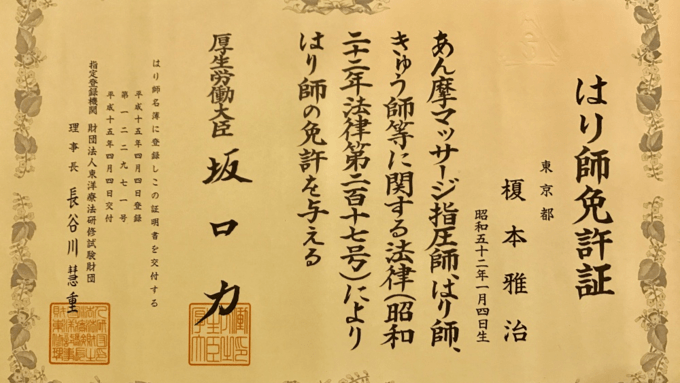 はり師免許証
東京都
榎本雅治
昭和五十二年一月四日生
あん摩マッサージ指圧師、はり師、
きゅう師等に関する法律(昭和
二十二年法律第二百十七号)により
はり師の免許を与える
厚生労働大臣 坂口力
はり師名簿に登録しこの証明書を交付する
平成十五年四月四日登録
第一二二九七一号
平成十五年四月四日交付
指定登録機関 財団法人東洋療法研修試験財団
理事長 長谷川慧重